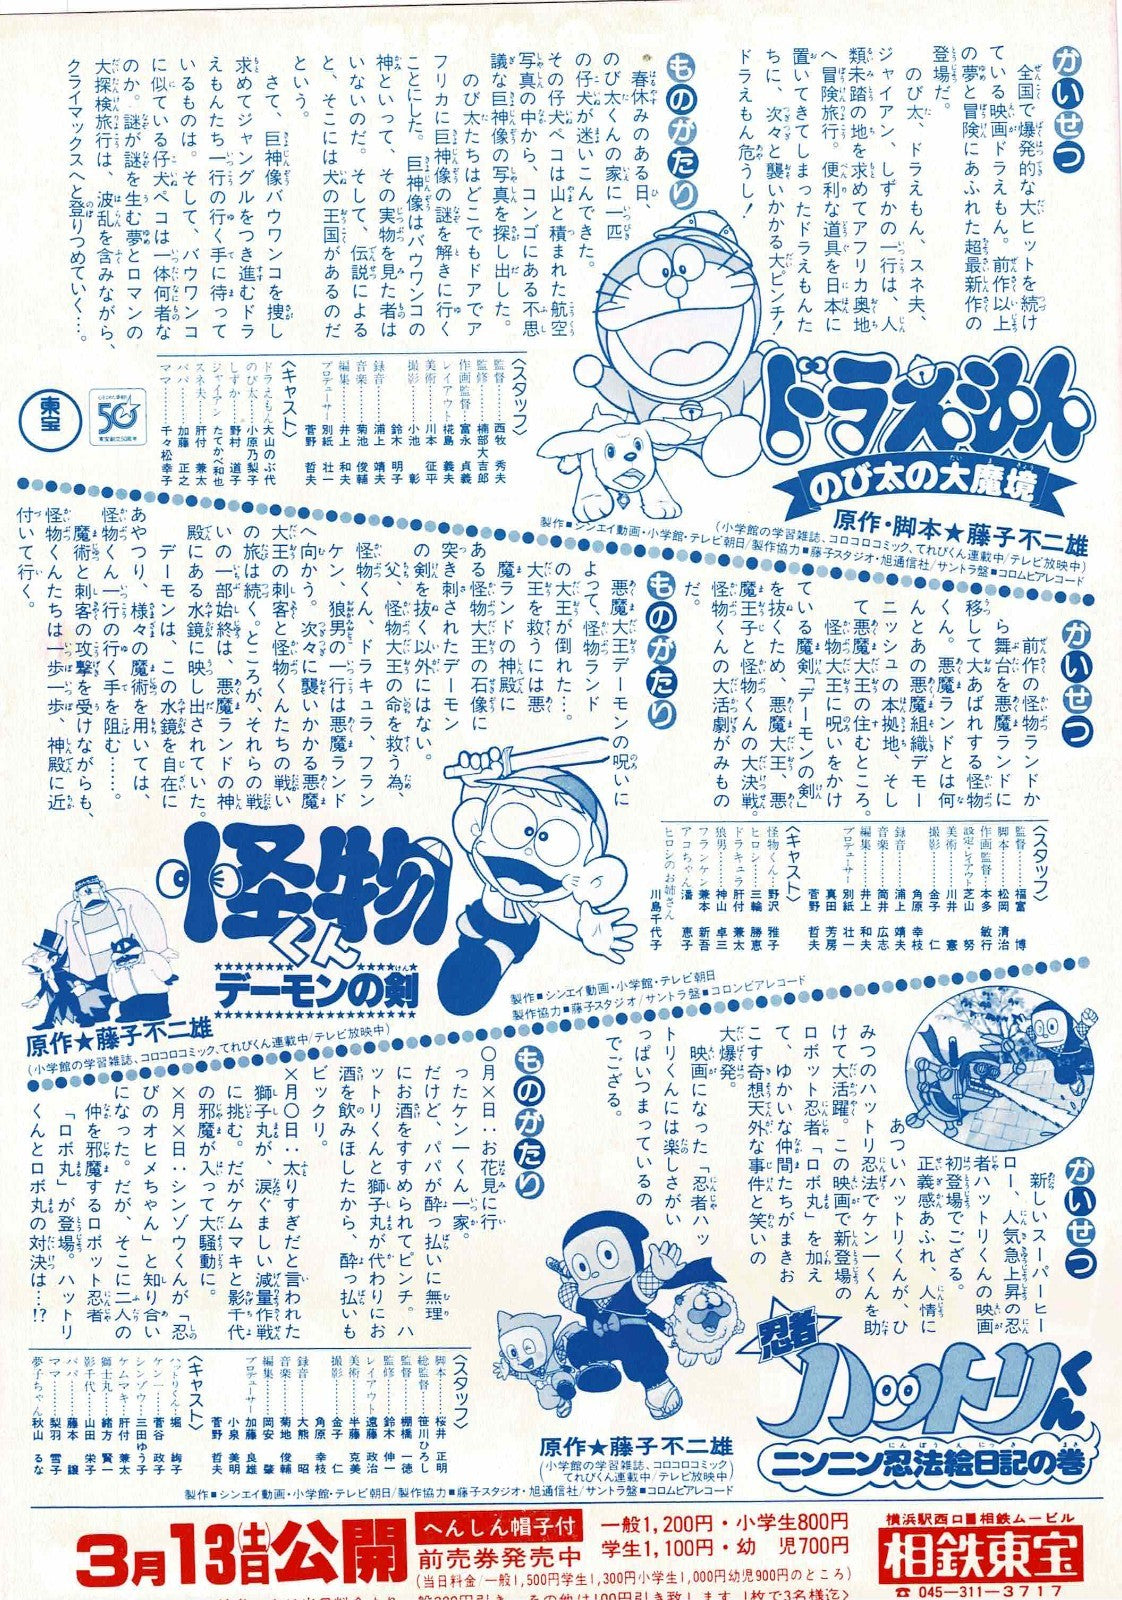 かいせつ
全国で爆発的な大ヒットを続け
ている映画ドラえもん。前作以上
の夢と冒険にあふれた超最新作の
登場だ。
のび太、ドラえもん、スネ夫、
ジャイアン、しずかの一行は、人
類未踏の地を求めてアフリカ奥地
へ冒険旅行。便利な道具を日本に
置いてきてしまったドラえもんた
ちに、次々と襲いかかる大ピンチ!
ドラえもん危うし!
ものがたり
春休みのある日、
のび太くんの家に一匹
の仔犬が迷いこんできた。
その仔犬ペコは山と積まれた航空
写真の中から、コンゴにある不思
議な巨神像の写真を探し出した。
のび太たちはどこでもドアでア
フリカに巨神像の謎を解きに行く
ことにした。巨神像はバウワンコの
神といって、その実物を見た者は
いないのだ。そして、伝説による
と、そこには犬の王国があるのだ
という。
さて、巨神像バウワンコを捜し
求めてジャングルをつき進むドラ
えもんたち一行の行く手に待って
いるものは。そして、バウワンコ
に似ている仔犬ペコは一体何者な
のか。謎が謎を生む夢とロマンの
大探検旅行は、波乱を含みながら、
クライマックスへと登りつめていく…。
ドラえもん
のび太の大魔境
原作・脚本★藤子不二雄
(小学館の学習雑誌、コロコロコミック、てれびくん連載中/テレビ放映中)
製作■シンエイ動画・小学館・テレビ朝日/製作協力■藤子スタジオ・旭通信社/サントラ盤■コロムビアレコード
〈スタッフ〉
監督……西牧 秀夫
監修……楠部大吉郎
作画監督…富永 貞義
レイアウト…椛島 義夫
美術……川本 征平
撮影……小池 彰
録音……浦上 靖夫
音楽……菊池 俊輔
編集……井上 和夫
プロデューサー…別紙 壮一
菅野 哲夫
〈キャスト〉
ドラえもん…大山のぶ代
のび太……小原乃梨子
しずか……野村 道子
ジャイアン…たてかべ和也
スネ夫……肝付 兼太
パパ……加藤 正之
ママ……千々松幸子
東宝
50
かいせつ
前作の怪物ランドか
ら舞台を悪魔ランドに
移して大あばれする怪物
くん。悪魔ランドとは何
んとあの悪魔組織デモー
ニッシュの本拠地、そし
て悪魔大王の住むところ。
怪物大王に呪いをかけ
ている魔剣「デーモンの剣」
を抜くため、悪魔大王、悪
魔王子と怪物くんの大決戦。
怪物くんの大活劇がみもの
だ。
ものがたり
悪魔大王デーモンの呪いに
よって、怪物ランド
の大王が倒れた…。
大王を救うには悪
魔ランドの神殿に
ある怪物大王の石像に
突き刺されたデーモン
の剣を抜く以外にはない。
父、怪物大王の命を救う為、
怪物くん、ドラキュラ、フラン
ケン、狼男の一行は悪魔ランド
へ向かう。次々に襲いかかる悪魔
大王の刺客と怪物くんたちの戦い
の旅は続く。ところが、それらの戦
いの一部始終は、悪魔ランドの神
殿にある水鏡に映し出されていた。
デーモンは、この水鏡を自在に
あやつり、様々の魔術を用いては、
怪物くん一行の行く手を阻む……。
魔術と刺客の攻撃を受けながらも、
怪物くんたちは一歩一歩、神殿に近
付いて行く。
〈スタッフ〉
監督……福富 博
脚本……松岡 清治
作画監督…本多 敏行
設定・レイアウト…芝山 努
美術……川井 憲
撮影……金子 仁
録音……浦上 靖夫
音楽……筒井 広志
編集……井上 和夫
プロデューサー…別紙 壮一
真田 芳房
菅野 哲夫
〈キャスト〉
怪物くん…野沢 雅子
ヒロシ……三輪 勝恵
ドラキュラ…肝付 兼太
狼男……神山 卓三
フランケン…兼本 新吾
アコちゃん…潘 恵子
ヒロシのお姉さん
川島千代子
怪物くん
デーモンの剣
原作★藤子不二雄
(小学館の学習雑誌、コロコロコミック、てれびくん連載中/テレビ放映中)
製作■シンエイ動画・小学館・テレビ朝日
製作協力■藤子スタジオ/サントラ盤■コロンビアレコード
かいせつ
新しいスーパーヒー
ロー、人気急上昇の忍
者ハットリくんの映画
初登場でござる。
正義感あふれ、人情に
あついハットリくんが、ひ
みつのハットリ忍法でケン一くんを助
けて大活躍。この映画で新登場の
ロボット忍者「ロボ丸」を加え
て、ゆかいな仲間たちがまきお
こす奇想天外な事件と笑いの
大爆発。
映画になった「忍者ハッ
トリくんには楽しさがい
っぱいつまっているの
でござる。
ものがたり
○月×日‥お花見に行
ったケン一くん一家。
だけど、パパが酔っ払いに無理
にお酒をすすめられてピンチ。ハ
ットリくんと獅子丸が代わりにお
酒を飲みほしたから、酔っ払いも
ビックリ。
×月○日‥太りすぎだと言われた
獅子丸が、涙ぐましい減量作戦
に挑む。だがケムマキと影千代
の邪魔が入って大騒動に。
×月×日‥シンゾウくんが「忍
びのオヒメちゃん」と知り合い
になった。だが、そこに二人の
仲を邪魔するロボット忍者
「ロボ丸」が登場。ハットリ
くんとロボ丸の対決は…!?
〈スタッフ〉
脚本……桜井 正明
総監督……笹川ひろし
監督……棚橋 一徳
監修……鈴木 伸一
レイアウト…遠藤 政治
美術……半藤 克美
撮影……金子 仁
録音……大熊 昭
音楽……菊地 俊輔
編集……岡安 肇
プロデューサー…加藤 良雄
小泉 美明
菅野 哲夫
〈キャスト〉
ハットリくん…堀 絢子
ケン一……菅谷 政子
シンゾウ…三田ゆう子
ケムマキ…肝付 兼太
獅士丸……緒方 賢一
影千代……山田 栄子
パパ……藤本 譲
ママ……梨羽 雪子
夢子ちゃん…秋山 るな
忍者ハットリくん
ニンニン忍法絵日記の巻
原作★藤子不二雄
(小学館の学習雑誌、コロコロコミック
てれびくん連載中/テレビ放映中)
製作■シンエイ動画・小学館・テレビ朝日/製作協力■藤子スタジオ・旭通信社/サントラ盤■コロムビアレコード
3月13日(土)公開
へんしん帽子付
前売券発売中
一般1,200円・小学生800円
学生1,100円・幼 児700円
(当日料金/一般1,500円学生1,300円小学生1,000円幼児900円のところ)
横浜駅西口■相鉄ムービル
相鉄東宝
☎045-311-3717